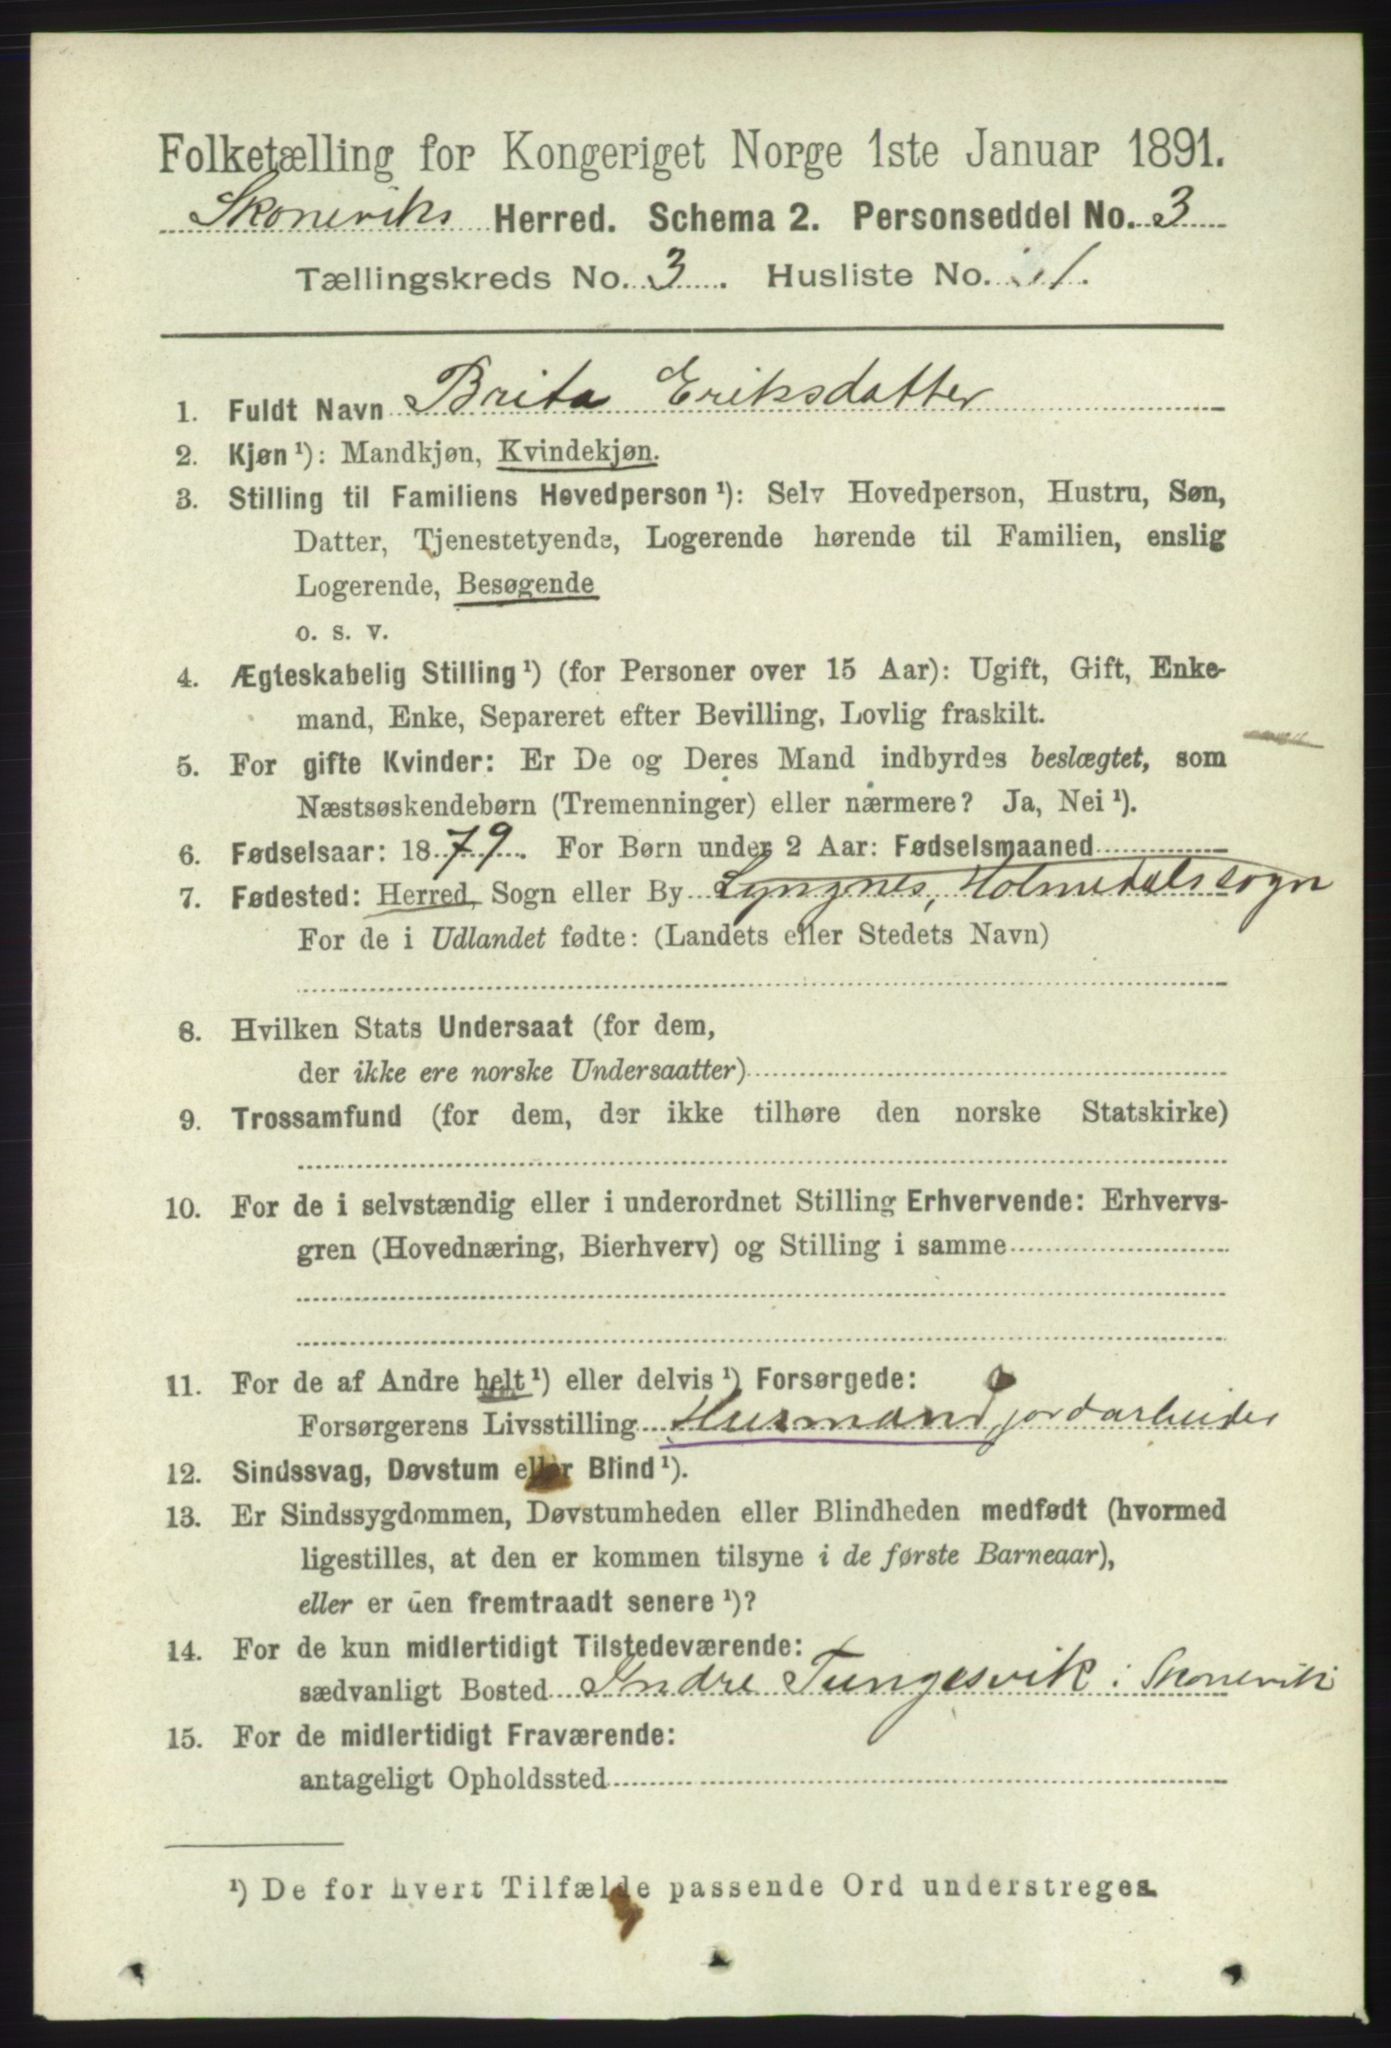 Folketælling for Kongeriget Norge 1ste Januar 1891.
Skoneviks Herred. Schema 2. Personseddel No. 3
Tællingskreds No. 3. Husliste No. 1.
1. Fuldt Navn Brita Eriksdatter
2. Kjøn ¹): Mandkjøn, Kvindekjøn.
3. Stilling til Familiens Hovedperson ¹): Selv Hovedperson, Hustru, Søn,
Datter, Tjenestetyende, Logerende hørende til Familien, enslig
Logerende, Besøgende
o. s. v.
4. Ægteskabelig Stilling ¹) (for Personer over 15 Aar): Ugift, Gift, Enke-
mand, Enke, Separeret efter Bevilling, Lovlig fraskilt.
5. For gifte Kvinder: Er De og Deres Mand indbyrdes beslægtet, som
Næstsøskendebørn (Tremenninger) eller nærmere? Ja, Nei ¹).
6. Fødselsaar: 1879. For Børn under 2 Aar: Fødselsmaaned
7. Fødested: Herred, Sogn eller By Lyngnes, Holmedals sogn
For de i Udlandet fødte: (Landets eller Stedets Navn)
8. Hvilken Stats Undersaat (for dem,
der ikke ere norske Undersaatter)
9. Trossamfund (for dem, der ikke tilhøre den norske Statskirke)
10. For de i selvstændig eller i underordnet Stilling Erhvervende: Erhvervs-
gren (Hovednæring, Bierhverv) og Stilling i samme
11. For de af Andre helt ¹) eller delvis ¹) Forsørgede:
Forsørgerens Livsstilling Husmand, jordarbeider
12. Sindssvag, Døvstum eller Blind ¹).
13. Er Sindssygdommen, Døvstumheden eller Blindheden medfødt (hvormed
ligestilles, at den er kommen tilsyne i de første Barneaar),
eller er den fremtraadt senere ¹)?
14. For de kun midlertidigt Tilstedeværende:
sædvanligt Bosted Indre Tungesvik i Skonevik
15. For de midlertidigt Fraværende:
antageligt Opholdssted
¹) De for hvert Tilfælde passende Ord understreges.